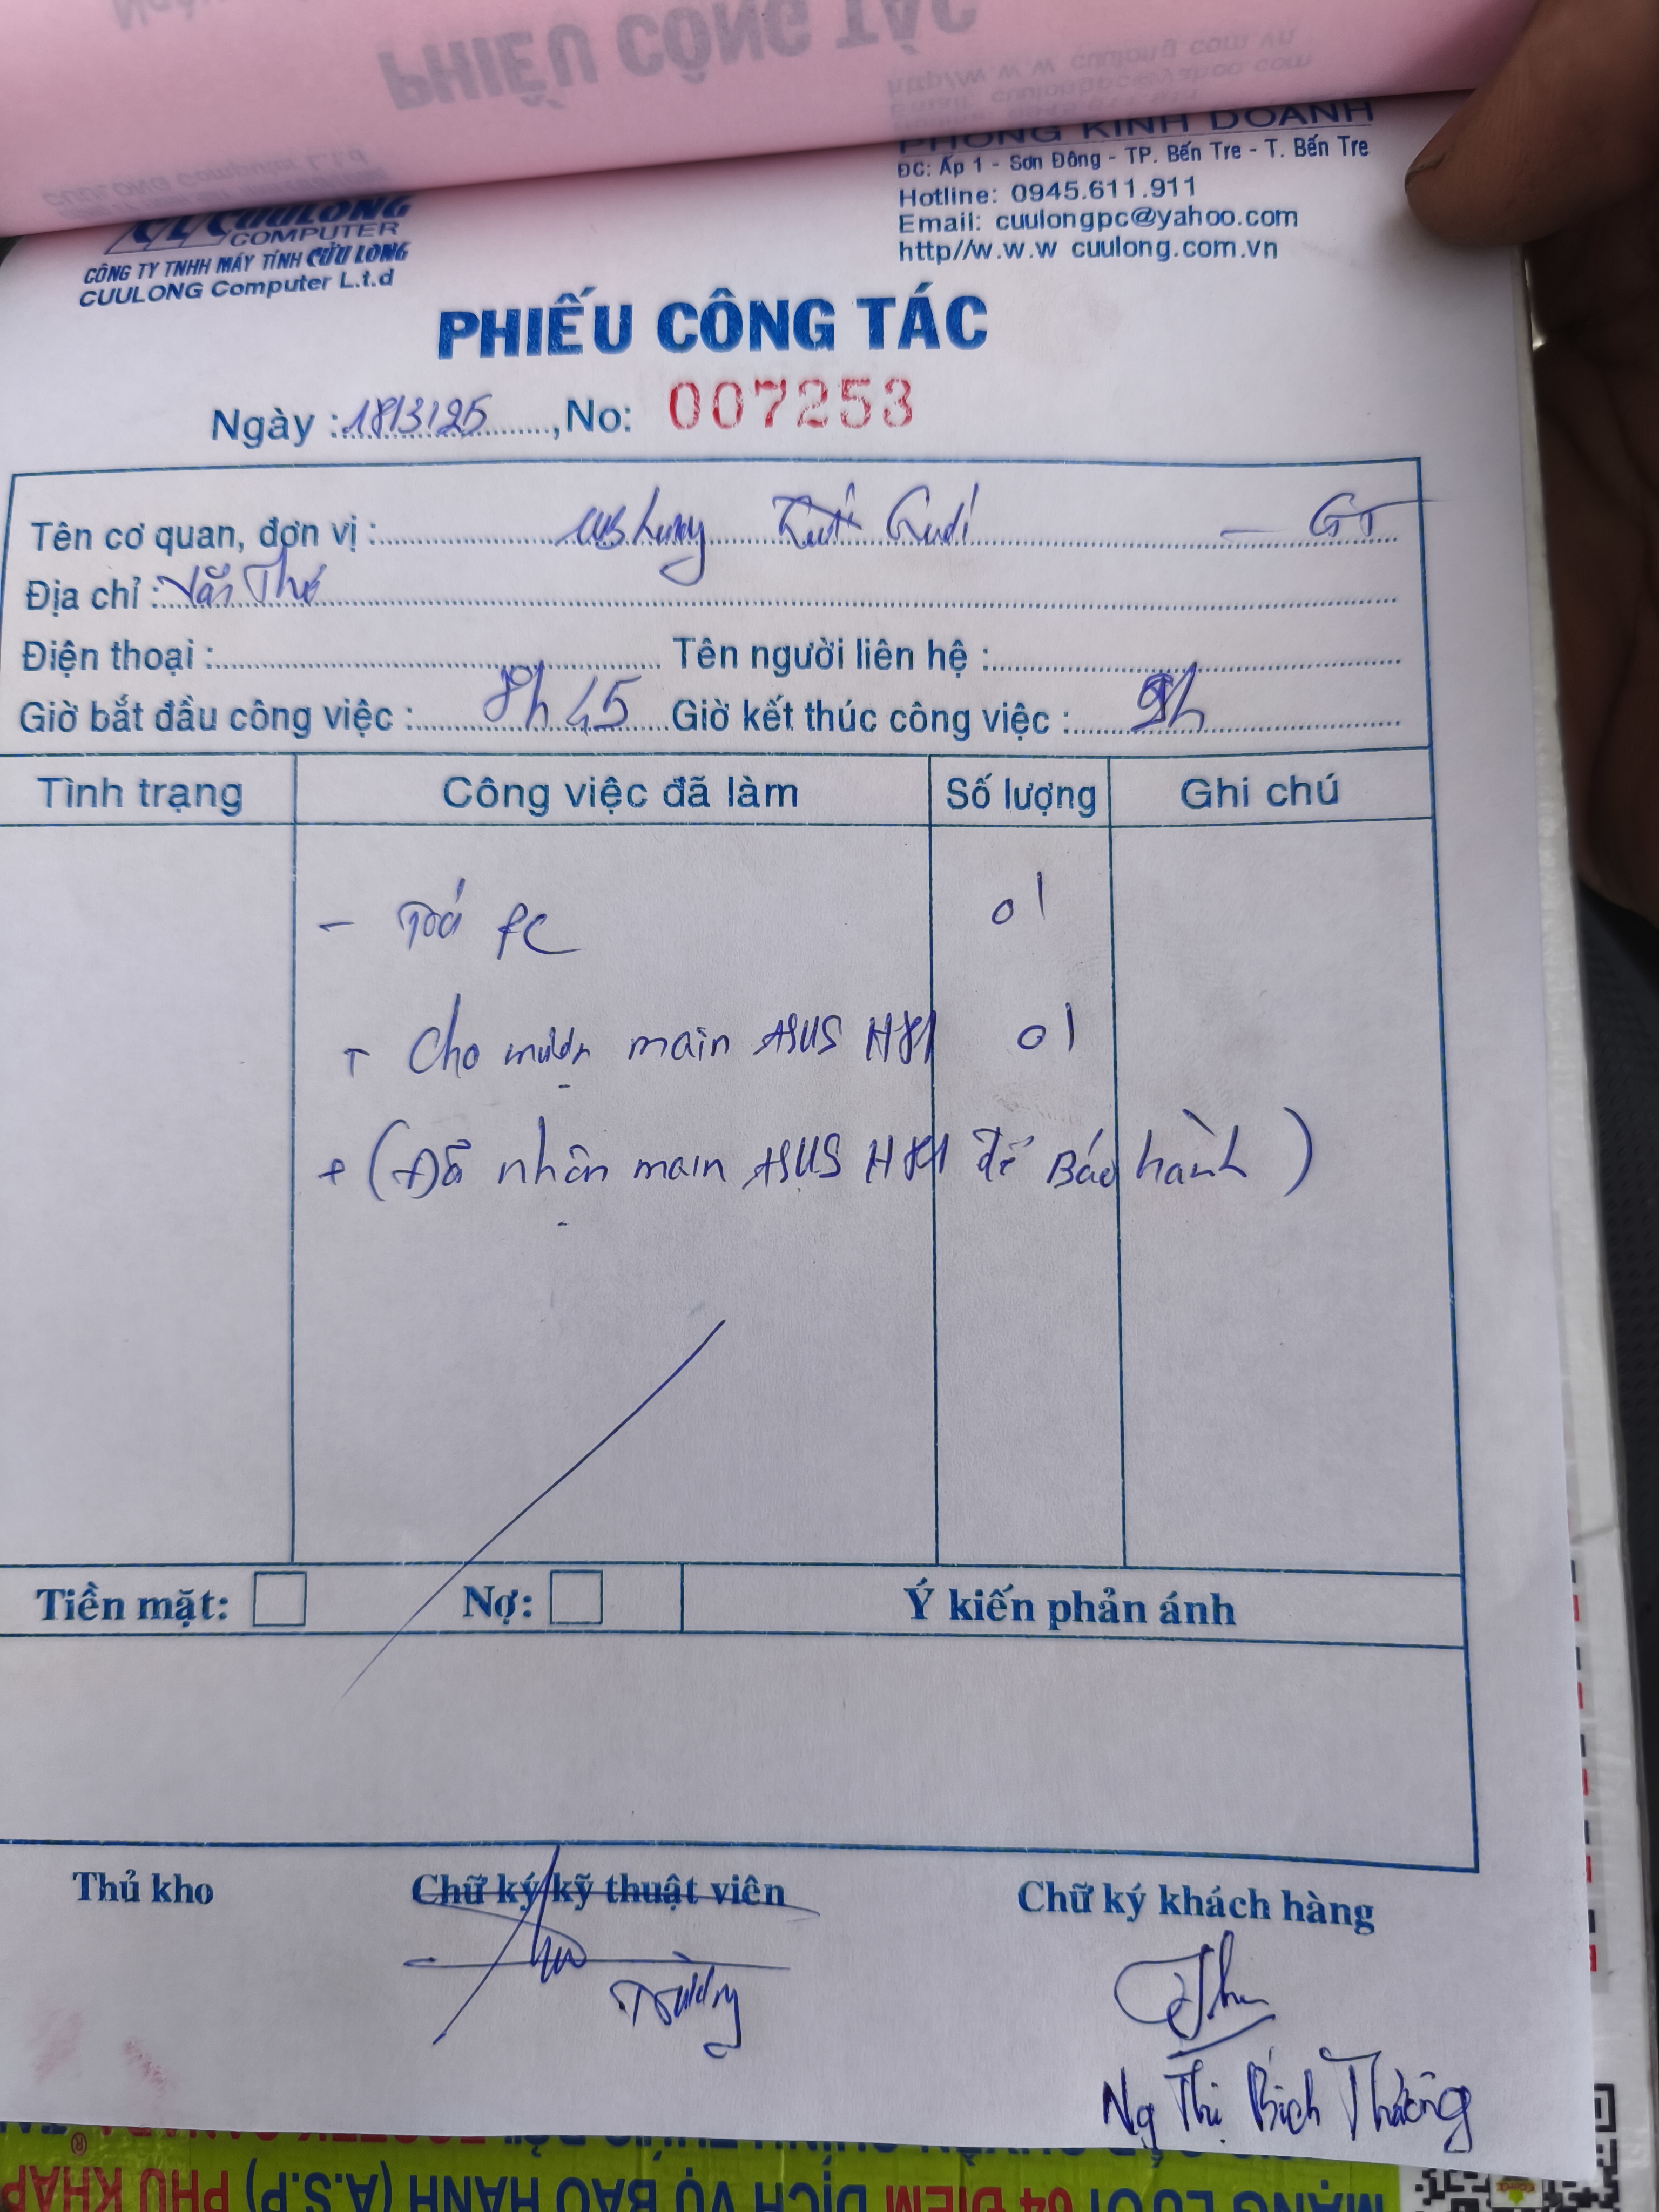 PHIẾU CÔNG TÁC
http//w.w.w cuulong.com.vn
CUULONG Computer L.t.d
PHÒNG KINH DOANH
ĐC: Ấp 1 - Sơn Đông - TP. Bến Tre - T. Bến Tre
Hotline: 0945.611.911
Email: cuulongpc@yahoo.com
http//w.w.w cuulong.com.vn
CUULONG
COMPUTER
CÔNG TY TNHH MÁY TÍNH CỬU LONG
CUULONG Computer L.t.d
PHIẾU CÔNG TÁC
Ngày : 18/3/25, No: 007253
Tên cơ quan, đơn vị : - GT
Địa chỉ :
Điện thoại : Tên người liên hệ :
Giờ bắt đầu công việc : 8h45 Giờ kết thúc công việc : 9h
Tình trạng Công việc đã làm Số lượng Ghi chú
- PC 01
+ Cho mượn main ASUS H81 01
+ (Đã nhận main ASUS H81 để Bảo hành)
Tiền mặt: Nợ: Ý kiến phản ánh
Thủ kho Chữ ký kỹ thuật viên Chữ ký khách hàng
Ng Thị Bích
MẠNG LƯỚI 64 ĐIỂM DỊCH VỤ BẢO HÀNH (A.S.P) PHỦ KHẮP